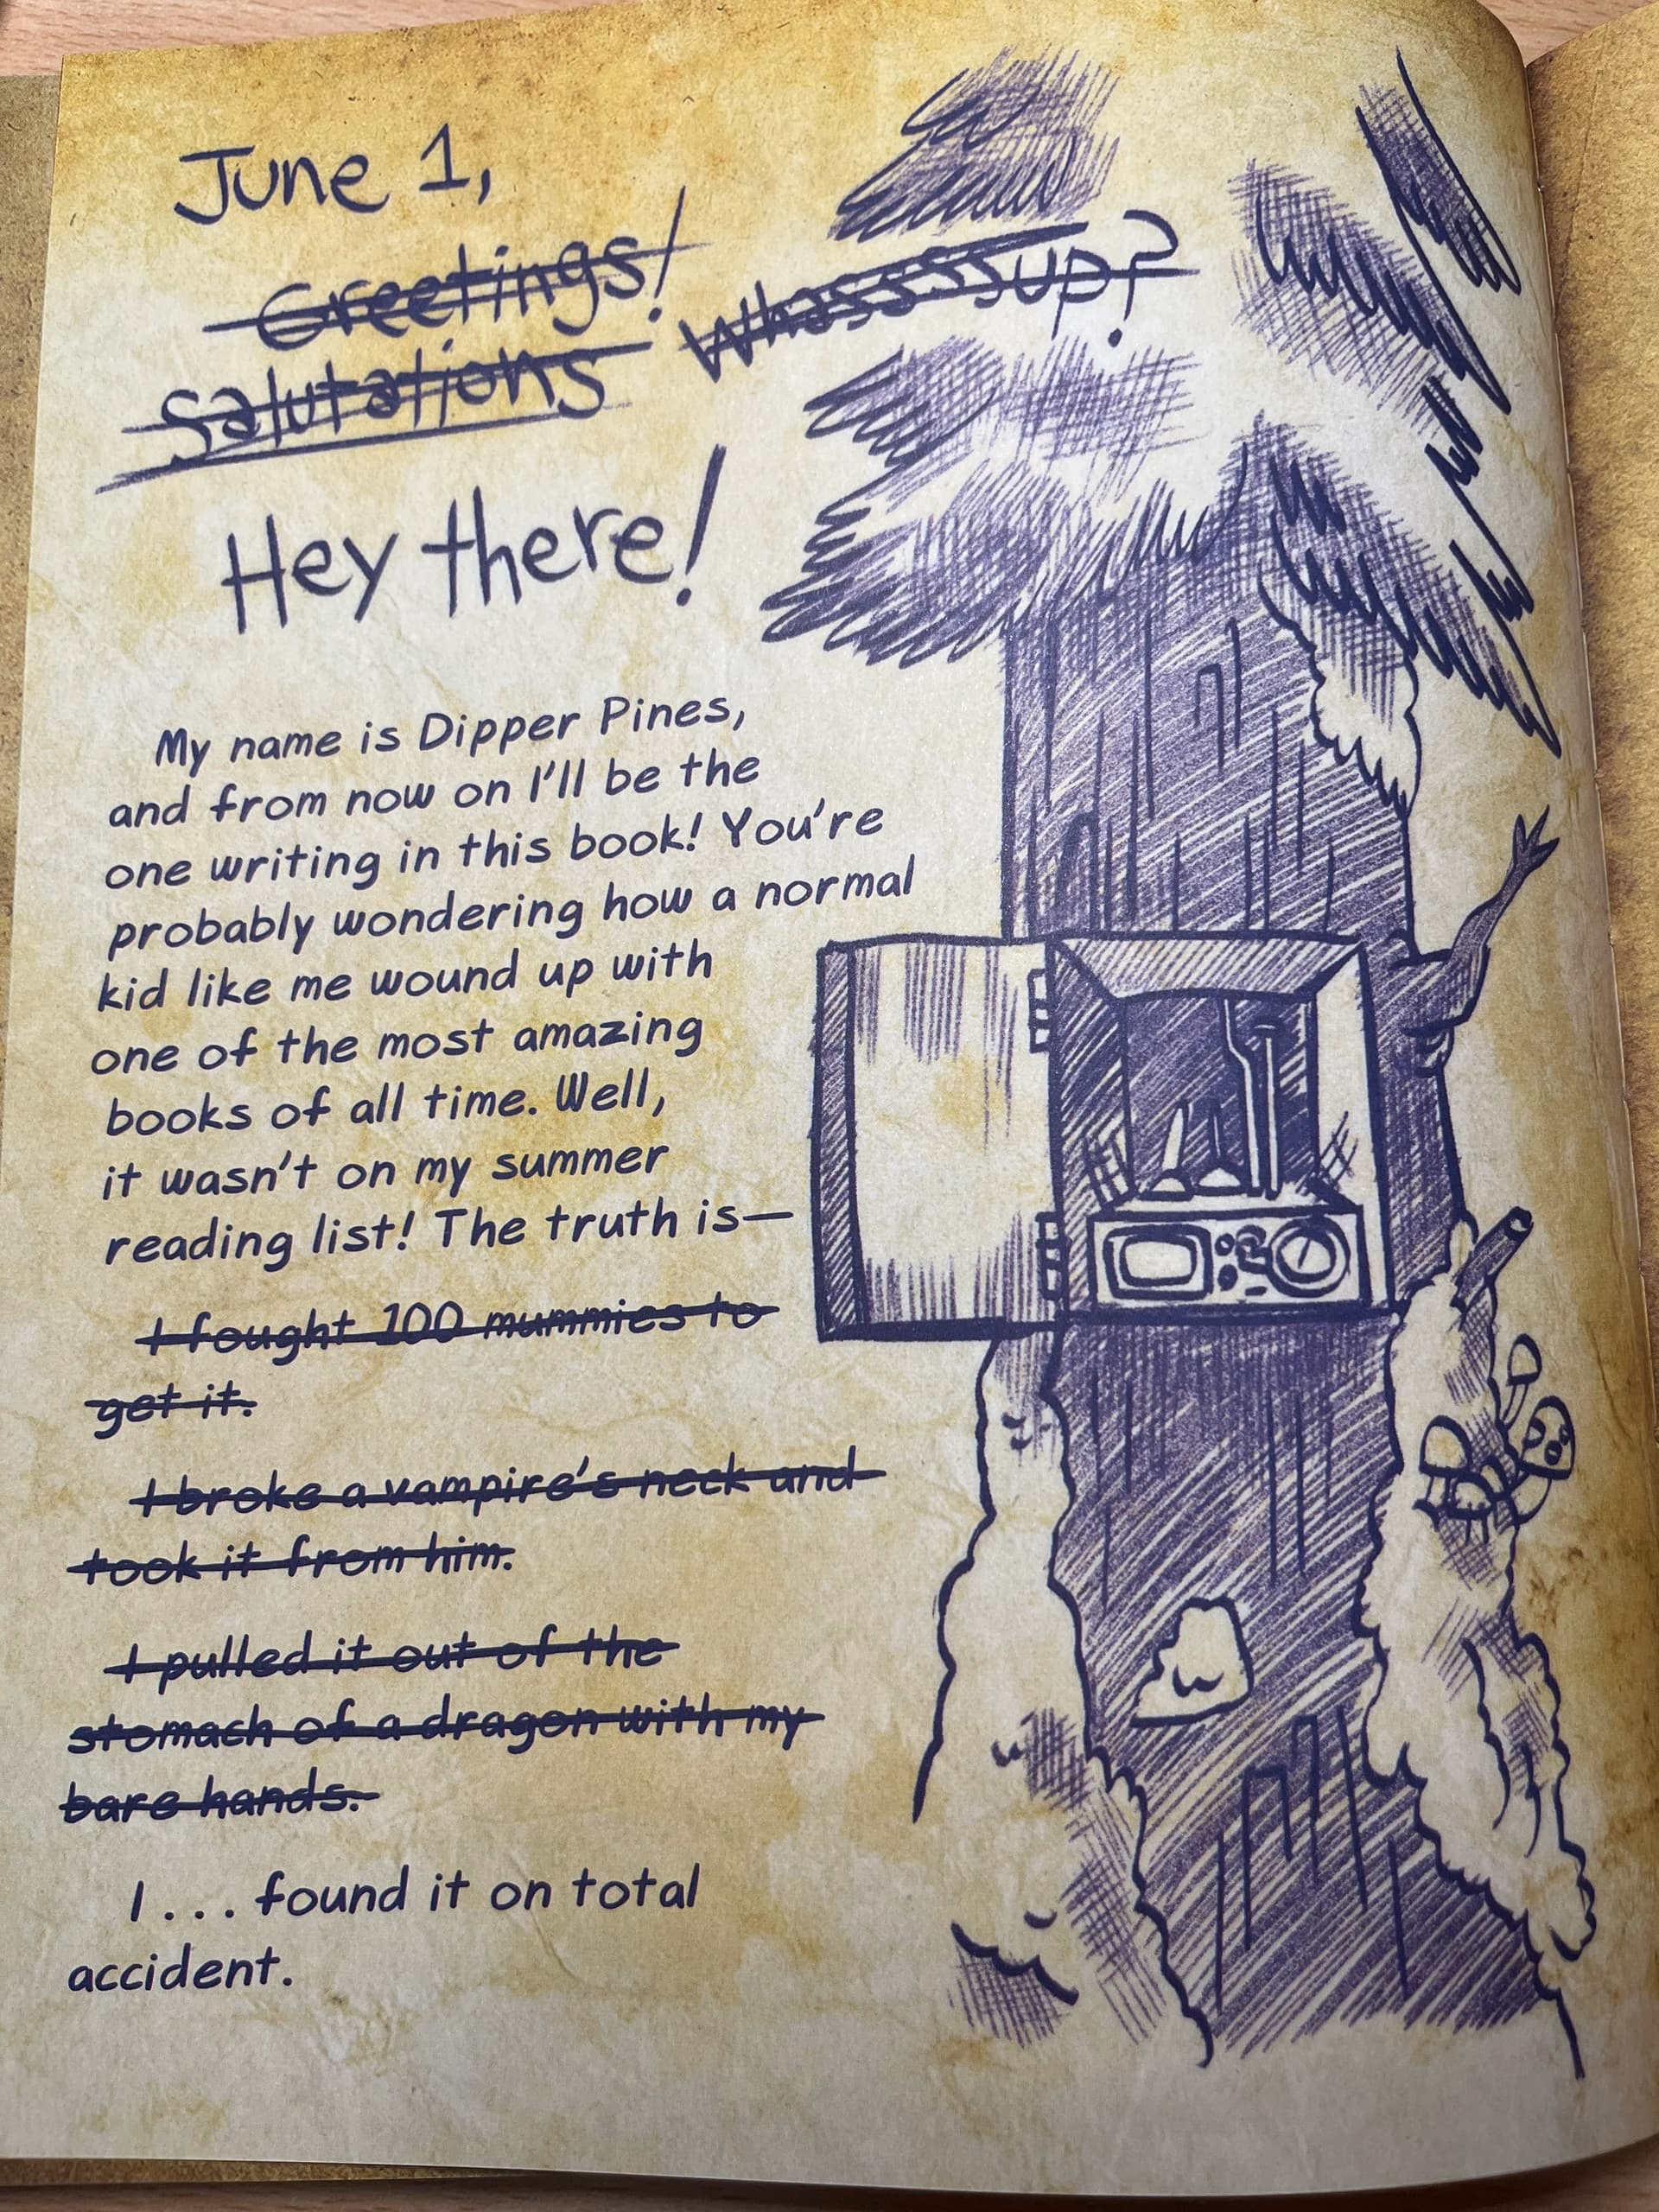 June 1,
Greetings!
Salutations Whasssssup?
Hey there!
My name is Dipper Pines,
and from now on I'll be the
one writing in this book! You're
probably wondering how a normal
kid like me wound up with
one of the most amazing
books of all time. Well,
it wasn't on my summer
reading list! The truth is—
I fought 100 mummies to
get it.
I broke a vampire's neck and
took it from him.
I pulled it out of the
stomach of a dragon with my
bare hands.
I . . . found it on total
accident.